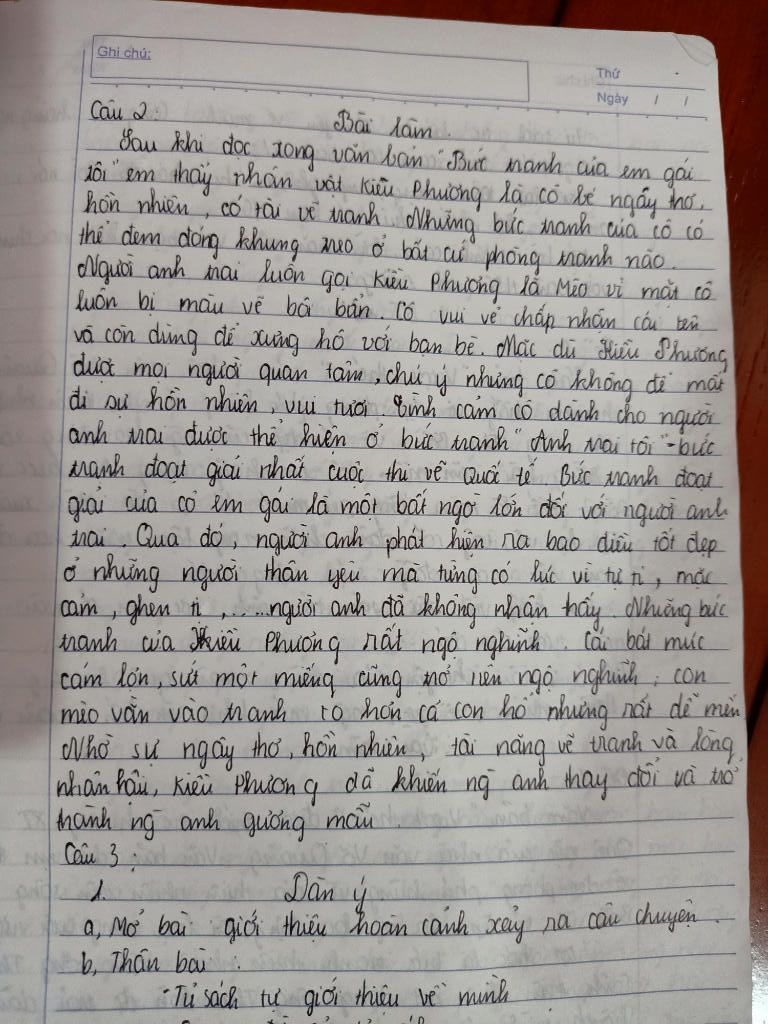 Ghi chú:
Thứ
Ngày / /
Câu 2:
Bài làm.
Sau khi đọc xong văn bản "Bức tranh của em gái
tôi" em thấy nhân vật Kiều Phương là cô bé ngây thơ,
hồn nhiên, có tài vẽ tranh. Những bức tranh của cô có
thể đem đóng khung treo ở bất cứ phòng tranh nào.
Người anh trai luôn gọi Kiều Phương là Mèo vì mặt cô
luôn bị màu vẽ bôi bẩn. Cô vui vẻ chấp nhận cái tên
và còn dùng để xưng hô với bạn bè. Mặc dù Kiều Phương
được mọi người quan tâm, chú ý nhưng cô không để mất
đi sự hồn nhiên, vui tươi. Tình cảm cô dành cho người
anh trai được thể hiện ở bức tranh "Anh trai tôi" - bức
tranh đoạt giải nhất cuộc thi vẽ Quốc tế. Bức tranh đoạt
giải của cô em gái là một bất ngờ lớn đối với người anh
trai. Qua đó, người anh phát hiện ra bao điều tốt đẹp
ở những người thân yêu mà từng có lúc vì tự ti, mặc
cảm, ghen tị,.....người anh đã không nhận thấy. Những bức
tranh của Kiều Phương rất ngộ nghĩnh. Cái bát múc
cám lớn, sứt một miếng cũng trở nên ngộ nghĩnh, con
mèo vằn vào tranh to hơn cả con hổ nhưng rất dễ mến.
Nhờ sự ngây thơ, hồn nhiên, tài năng vẽ tranh và lòng
nhân hậu, Kiều Phương đã khiến ng anh thay đổi và trở
thành ng anh gương mẫu.
Câu 3:
1. Dàn ý
a, Mở bài giới thiệu hoàn cảnh xảy ra câu chuyện.
b, Thân bài:
-Tủ sách tự giới thiệu về mình